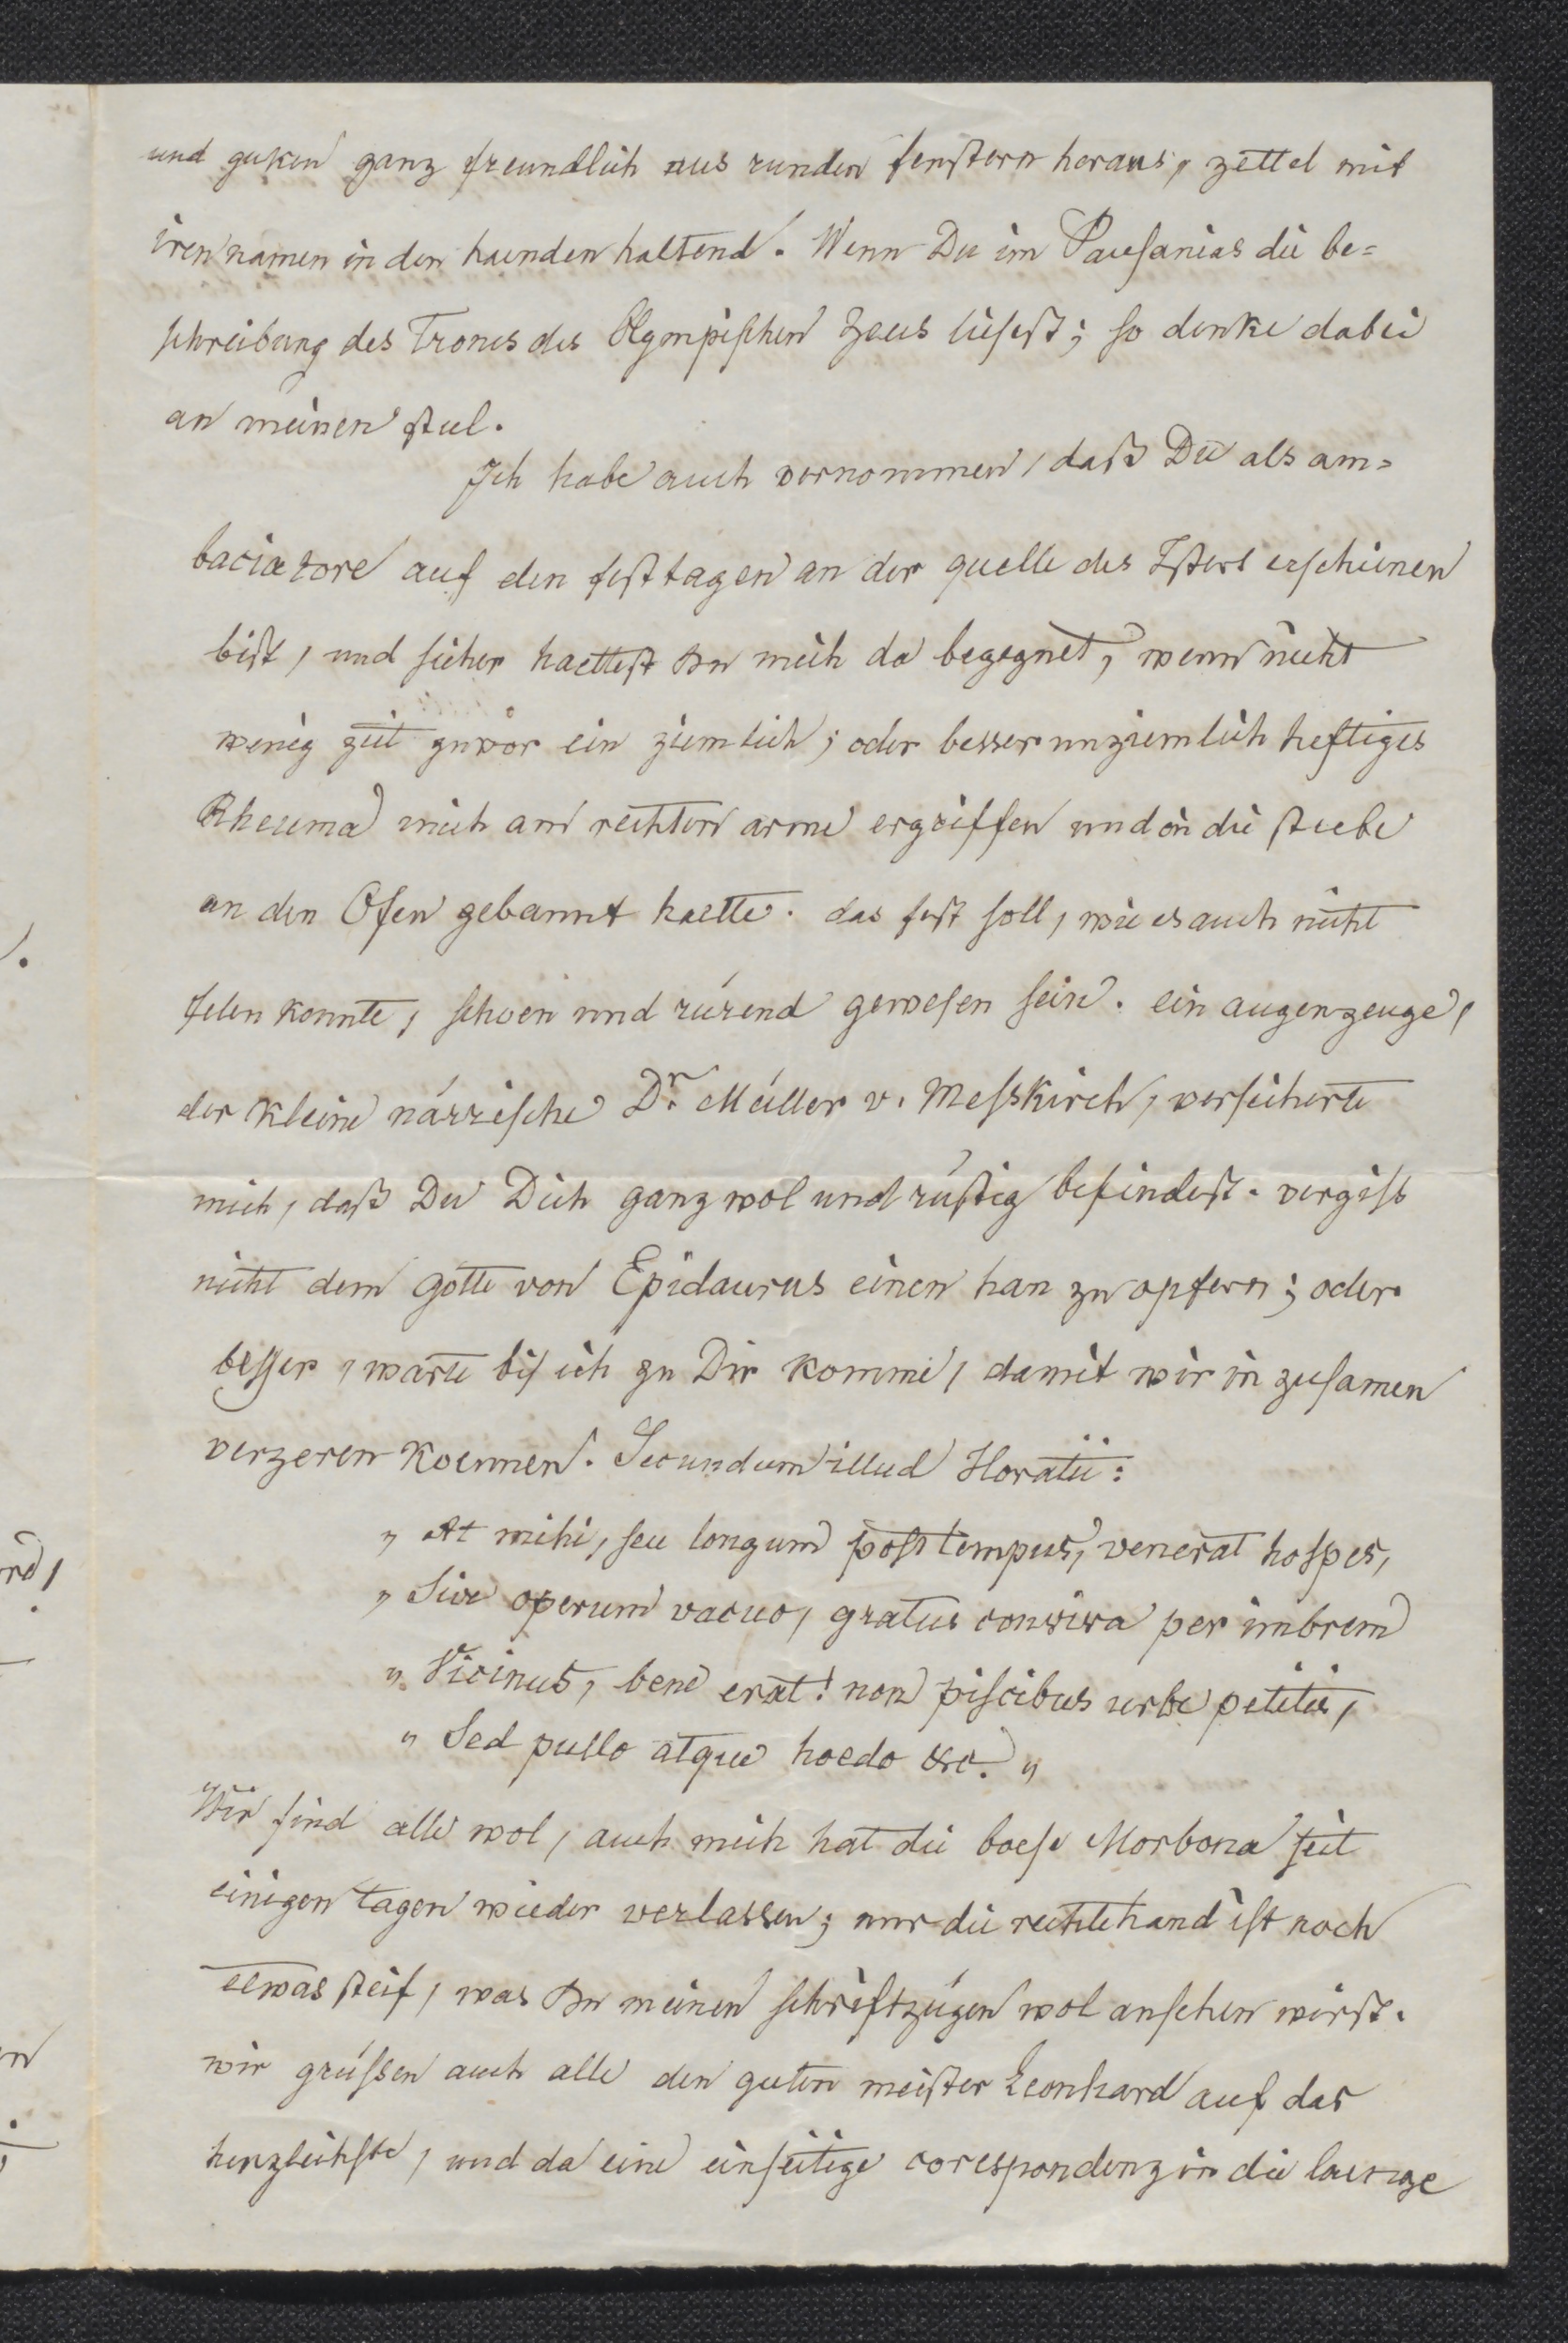 und guken ganz freundlich aus runden fenstern heraus, zettel mit
iren namen in den haenden haltend. Wenn Du im Pausanias die be=
schreibung des Trones des Olympischen Zeus liesest; so denke dabei
an meinen stul.
Ich habe auch vernommen, daß Du als am=
baciatore auf den festtagen an der quelle des Isters erschienen
bist, und sicher haettest Du mich da begegnet, wenn nicht
wenig zeit zuvor ein ziemlich; oder besser unziemlich heftiges
Rheuma mich am rechten arme ergriffen und in die stube
an den Ofen gebannt haette. das fest soll, wie es auch nicht
felen konnte, schoen und rürend gewesen sein. ein augenzeuge,
der kleine närrische Dr. Müller v. Messkirch, versicherte
mich, daß Du Dich ganz wol und rüstig befindest. vergiss
nicht dem gotte von Epidaurus einen han zu opfern; oder
besser, warte bis ich zu Dir komme, damit wir in zusamen
verzeren koennen. Secundum illud Horatii:
„ At mihi, seu longum post tempus, venerat hospes,
„ Sive operum vacuo, gratus conviva per imbrem
„ Vicinus, bene erat! non piscibus urbe petitis,
„ Sed pullo atque hoedo etc. „
Wir sind alle wol, auch mich hat die boese Morbona seit
einigen tagen wieder verlassen; nur die rechte hand ist noch
etwas steif, was Du meinen schriftzügen wol ansehen wirst.
wir grüssen auch alle den guten meister Leonhard auf das
herzlichste, und da eine einseitige corespondenz in die laenge